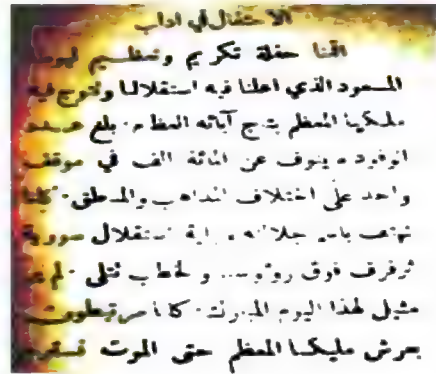 الاحتفال في اداب
اقمنا حفلة تكريم وتعظيم ليومنا
المسعود الذي اعلنا فيه استقلالنا وتتوج فيه
مليكنا المعظم بتاج آبائه العظام. بلغ عدد
الوفود ما ينوف عن المائة الف في موقف
واحد على اختلاف المذاهب والمناطق. كلنا
نهتف باسم جلالته وراية استقلال سورية
ترفرف فوق رؤوسنا والخطب تتلى
مثيل لهذا اليوم المبارك. كلنا مرتبطون
بعرش مليكنا المعظم حتى الموت